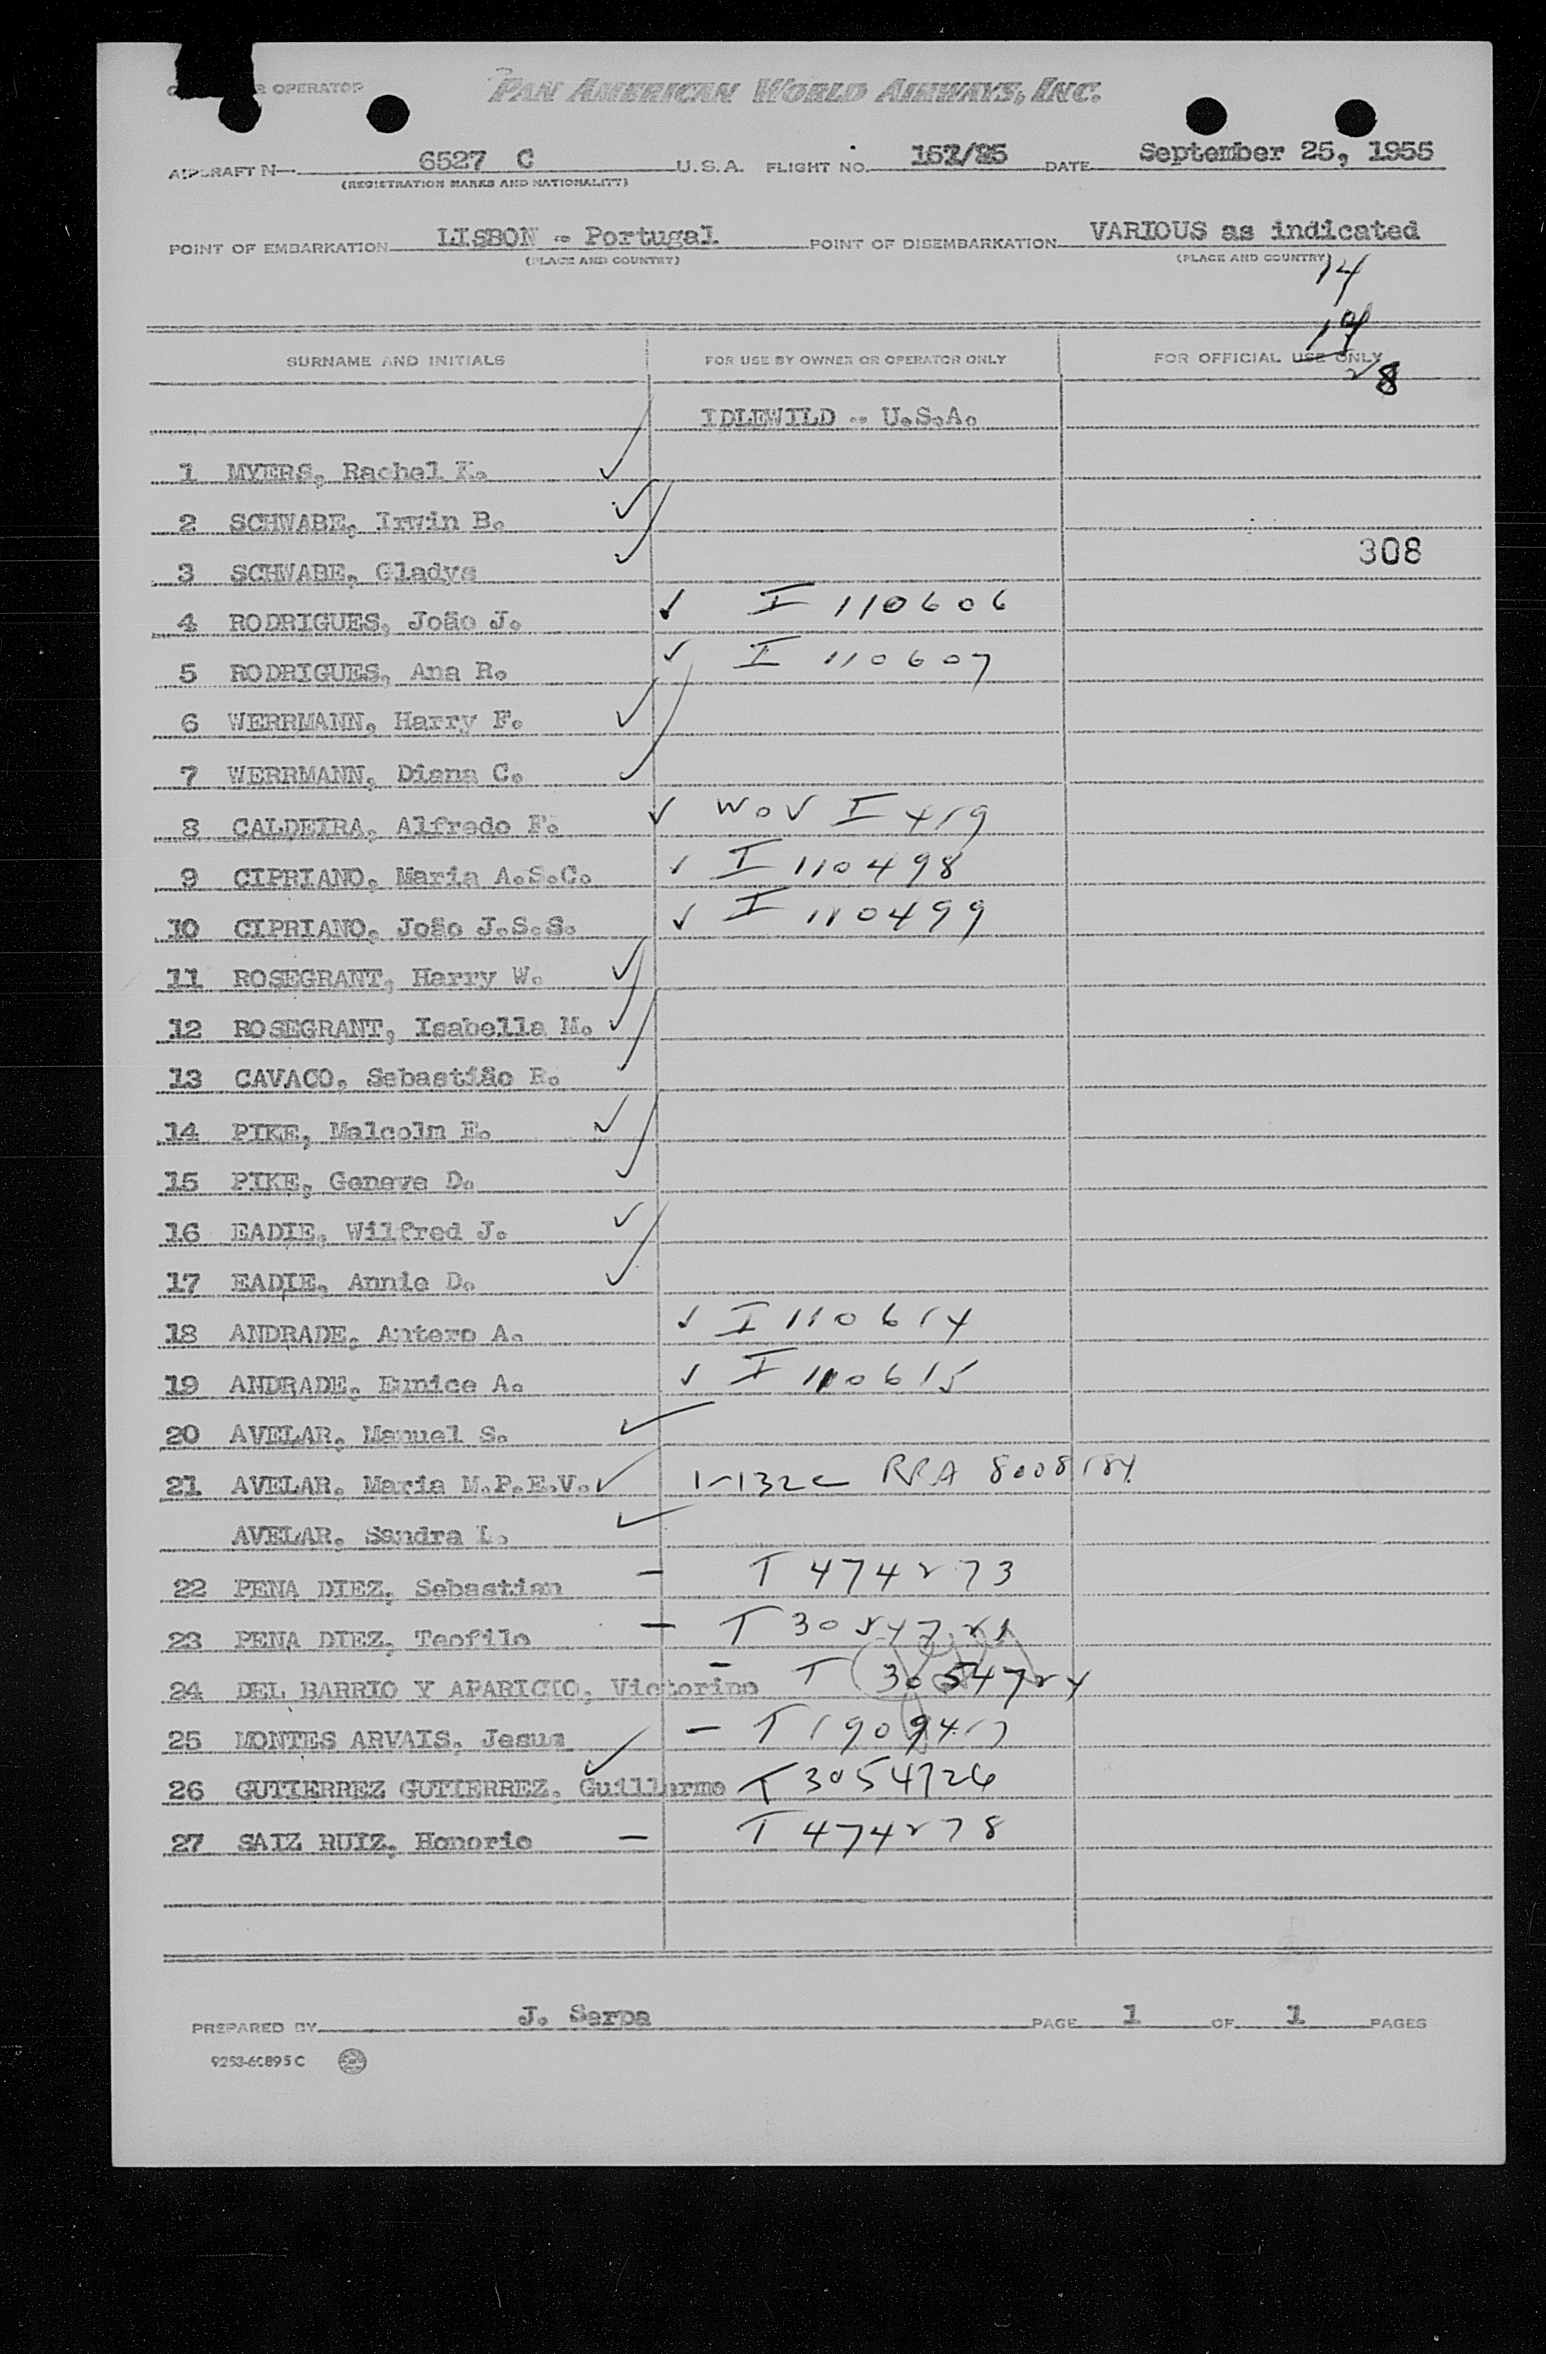 OPERATOR PAN AMERICAN WORLD AIRWAYS, INC.
AIRCRAFT N 6527 C U.S.A. FLIGHT NO. DATE September 25, 1955
(REGISTRATION MARKS AND NATIONALITY)
POINT OF EMBARKATION LISBON - Portugal POINT OF DISEMBARKATION VARIOUS as indicated
(PLACE AND COUNTRY) (PLACE AND COUNTRY)
14
14
SURNAME AND INITIALS FOR USE BY OWNER OR OPERATOR ONLY FOR OFFICIAL USE ONLY
28
IDLEWILD - U.S.A.
1 MYERS, Rachel K.
2 SCHWABE, Irwin B.
308
3 SCHWABE, Gladys
4 RODRIGUES, João J. ✓ I 110606
5 RODRIGUES, Ana R. ✓ I 110607
6 WERRMANN, Harry F.
7 WERRMANN, Diana C.
8 CALDEIRA, Alfredo F. ✓ WOV I 419
9 CIPRIANO, Maria A.S.C. ✓ I 110498
10 CIPRIANO, João J.S.S. ✓ I 110499
11 ROSEGRANT, Harry W.
12 ROSEGRANT, Isabella M.
13 CAVACO, Sebastião R.
14 PIKE, Malcolm E.
15 PIKE, Geneve D.
16 EADIE, Wilfred J.
17 EADIE, Annie D.
18 ANDRADE, Antero A. ✓ I 110614
19 ANDRADE, Eunice A. ✓ I 110615
20 AVELAR, Manuel S.
21 AVELAR, Maria M.P.E.V. RRA 8008184
AVELAR, Sandra L.
22 PENA DIEZ, Sebastian - T 474273
23 PENA DIEZ, Teofilo - T
24 DEL BARRIO Y APARICIO, Victorino - T 3054724
25 MONTES ARVAIS, Jesus - T 1909417
26 GUTIERREZ GUTIERREZ, Guillermo T 3054726
27 SAIZ RUIZ, Honorio - T 474278
PREPARED BY J. Serpa PAGE 1 OF 1 PAGES
9253-60895C